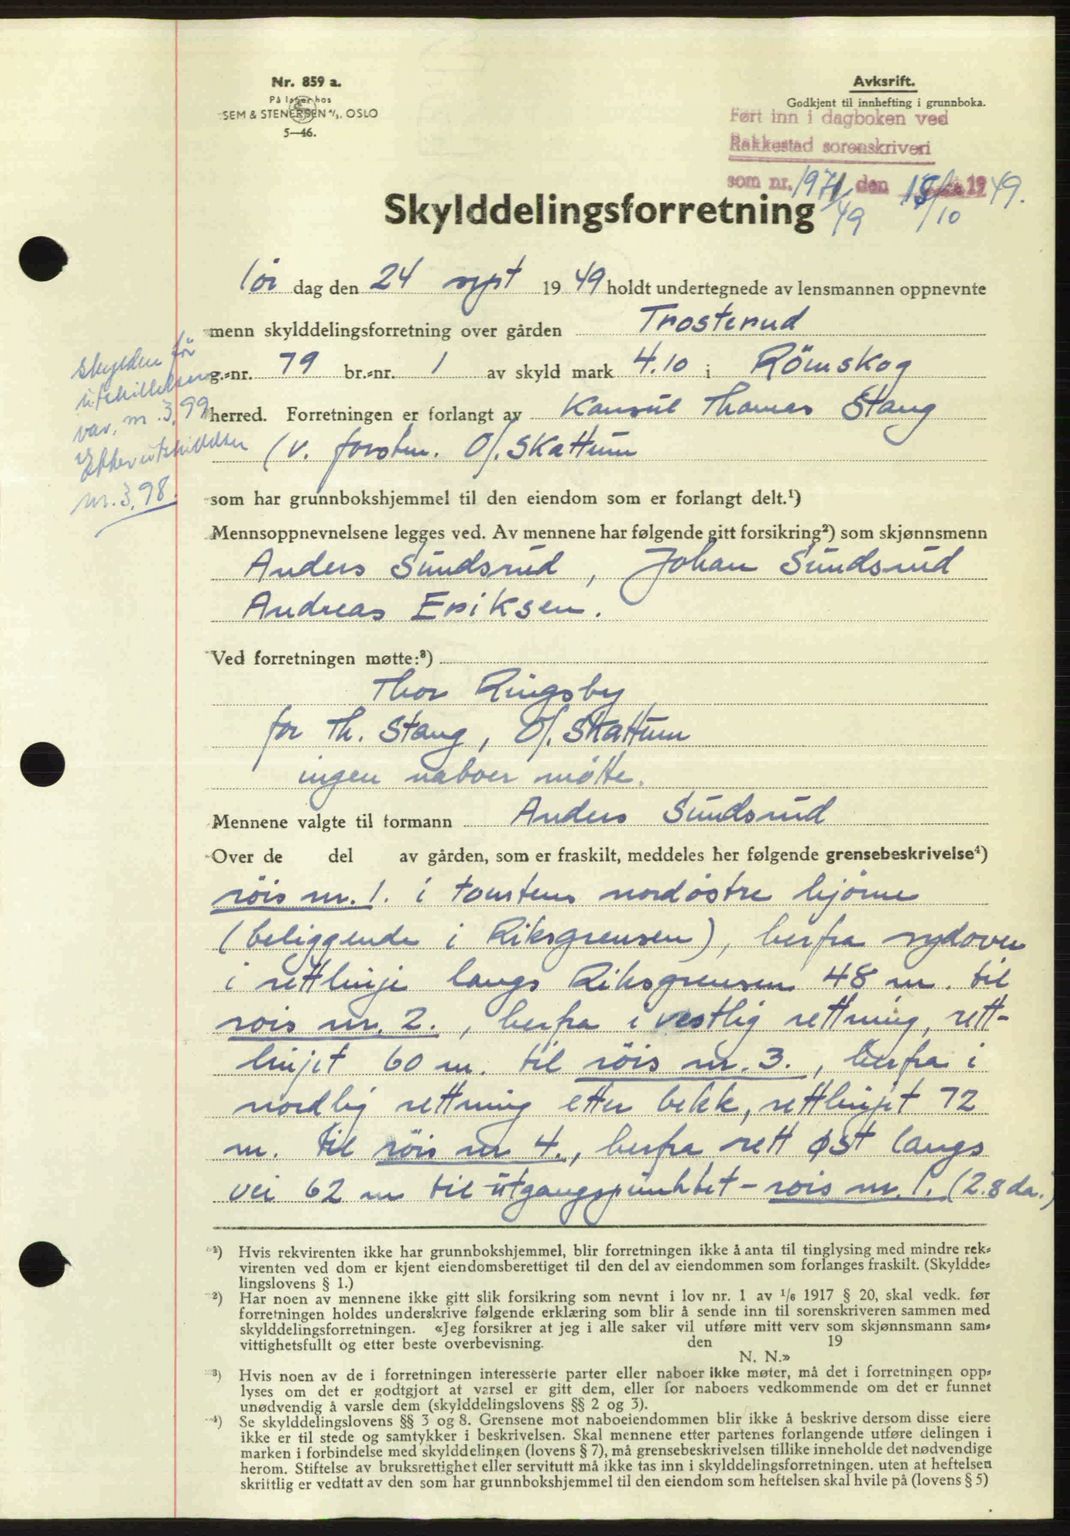 Nr. 859 a.
På lager hos
SEM & STENERSEN A/S. OSLO
5—46.
Avkskrift.
Godkjent til innhefting i grunnboka.
Ført inn i dagboken ved
Rakkestad sorenskriveri
som nr. 1971/49 den 15/10 1949.
Skylddelingsforretning
lör dag den 24 sept 19 49 holdt undertegnede av lensmannen oppnevnte
menn skylddelingsforretning over gården Trosterud
g.-nr. 79 br.-nr. 1 av skyld mark 4.10 i Römskog
herred. Forretningen er forlangt av Konsul Thomas Stang
(v. forstm. O/. Skattum
Skylden før
utskillelsen
var, m 3,99
Efter utskillelsen
m. 3,98.
som har grunnbokshjemmel til den eiendom som er forlangt delt.¹)
Mennsoppnevnelsene legges ved. Av mennene har følgende gitt forsikring²) som skjønnsmenn
Anders Sundsrud, Johan Sundsrud
Andreas Eriksen.
Ved forretningen møtte:³)
Thor Ringsby
for Th. Stang, O/. Skattum
ingen naboer møtte.
Mennene valgte til formann Anders Sundsrud
Over de del av gården, som er fraskilt, meddeles her følgende grensebeskrivelse⁴)
röis nr. 1. i tomtens nordöstre hjörne
(beliggende i Riksgrensen), herfra sydover
i rettlinje langs Riksgrensen 48 m. til
röis nr. 2., herfra i vestlig rettning, rett-
linjet 60 m. til röis nr. 3., herfra i
nordlig rettning etter bekk, rettlinjet 72
m. til röis nr 4., herfra rett øst langs
vei 62 m til utgangspunktet - röis nr. 1. (2.8 da.)
¹) Hvis rekvirenten ikke har grunnbokshjemmel, blir forretningen ikke å anta til tinglysing med mindre rek-
virenten ved dom er kjent eiendomsberettiget til den del av eiendommen som forlanges fraskilt. (Skyldde-
lingslovens § 1.)
²) Har noen av mennene ikke gitt slik forsikring som nevnt i lov nr. 1 av 1/6 1917 § 20, skal vedk. før
forretningen holdes underskrive følgende erklæring som blir å sende inn til sorenskriveren sammen med
skylddelingsforretningen. «Jeg forsikrer at jeg i alle saker vil utføre mitt verv som skjønnsmann sam-
vittighetsfullt og etter beste overbevisning. den 19
N. N.»
³) Hvis noen av de i forretningen interesserte parter eller naboer ikke møter, må det i forretningen opp-
lyses om det er godtgjort at varsel er gitt dem, eller for naboers vedkommende om det er funnet
unødvendig å varsle dem (skylddelingslovens §§ 2 og 3).
⁴) Se skylddelingslovens §§ 3 og 8. Grensene mot naboeiendommen blir ikke å beskrive dersom disse eiere
ikke er til stede og samtykker i beskrivelsen. Skal mennene etter partenes forlangende utføre delingen i
marken i forbindelse med skylddelingen (lovens § 7), må grensebeskrivelsen tillike inneholde det nødvendige
herom. Stiftelse av bruksrettighet eller servitutt må ikke tas inn i skylddelingsforretningen, uten at heftelsen
skriftlig er vedtatt av den som har grunnbokshjemmel til den eiendom som heftelsen skal hvile på (lovens § 5)